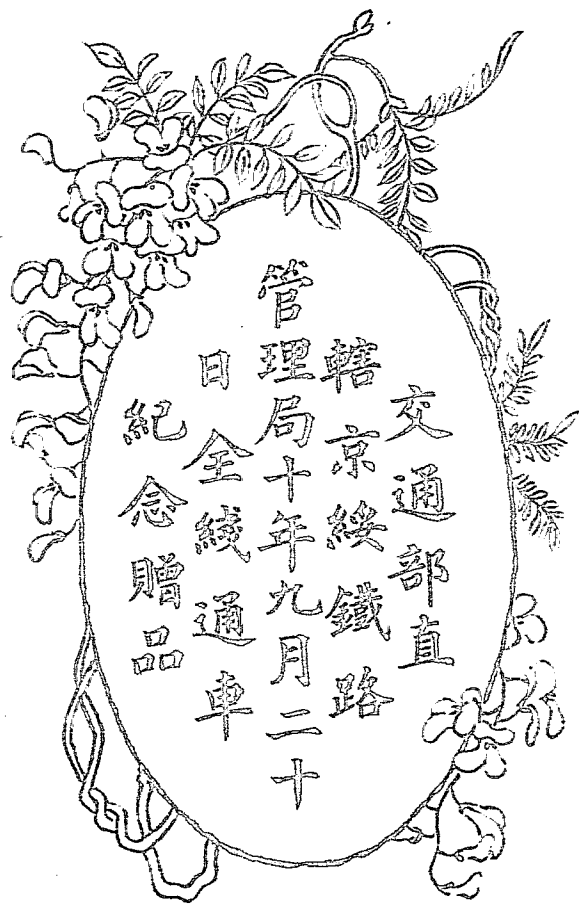 交通部直
轄京綏鐵路
管理局十年九月二十
日全綫通車
紀念贈品